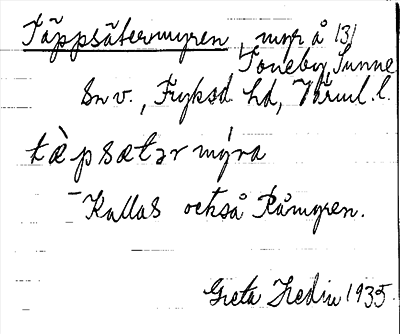 Täppsätermyren, myr å 131
Toneby, Sunne
sn v., Fryksd. hd, Värml. l.
tàpsætər mýra
Kallas också Råmyren.
Greta Hedin 1935.